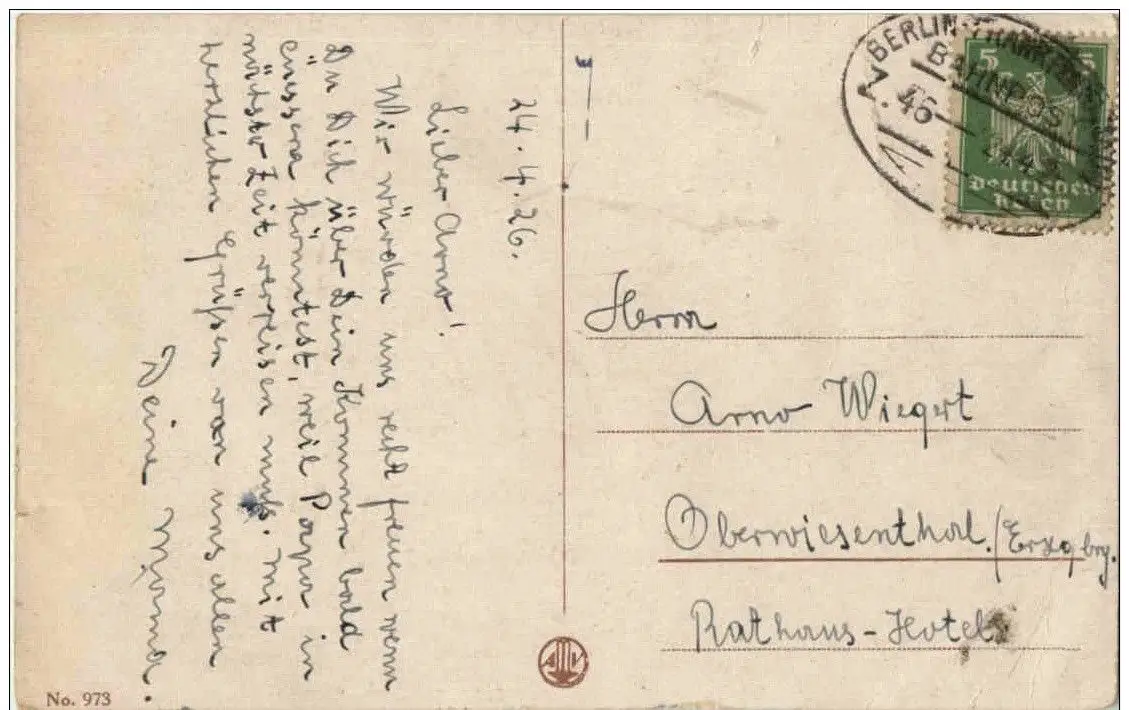 24.4.26.
Lieber Arno!
Wir würden uns recht freuen wenn
Du Dich über Dein Kommen bald
äussern könntest, weil Papa in
nächster Zeit verreisen muß. Mit
herzlichen Grüßen von uns allen
Deine Mama.
BERLIN-FRANKF
BAHNPOS
5 5
Deutsches
Reich
Herrn
Arno Wiegert
Oberwiesenthal. (Erzgbrg.
Rathaus-Hotel
No. 973